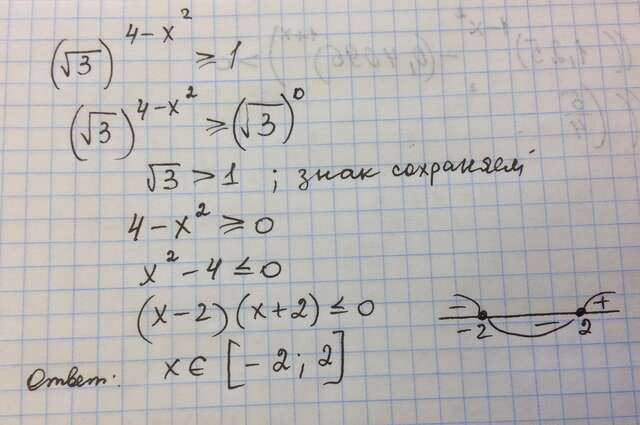 (√3)^(4-x²) ≥ 1
(√3)^(4-x²) ≥ (√3)^0
√3 > 1 ; знак сохраняем
4 - x² ≥ 0
x² - 4 ≤ 0
(x-2)(x+2) ≤ 0
− − +
-2 2
Ответ: x ∈ [-2; 2]